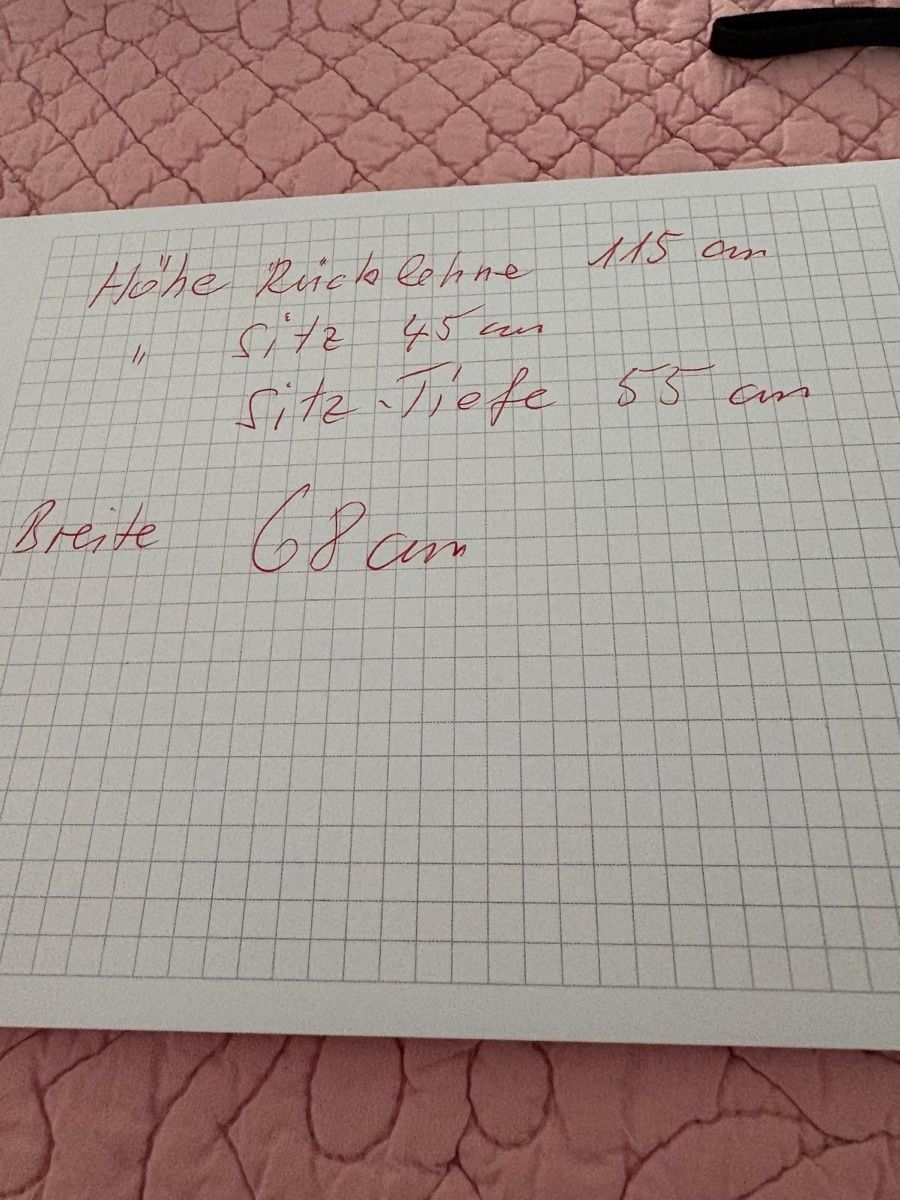 Höhe Rücklehne 115 cm
" Sitz 45 cm
Sitz-Tiefe 55 cm
Breite 68 cm